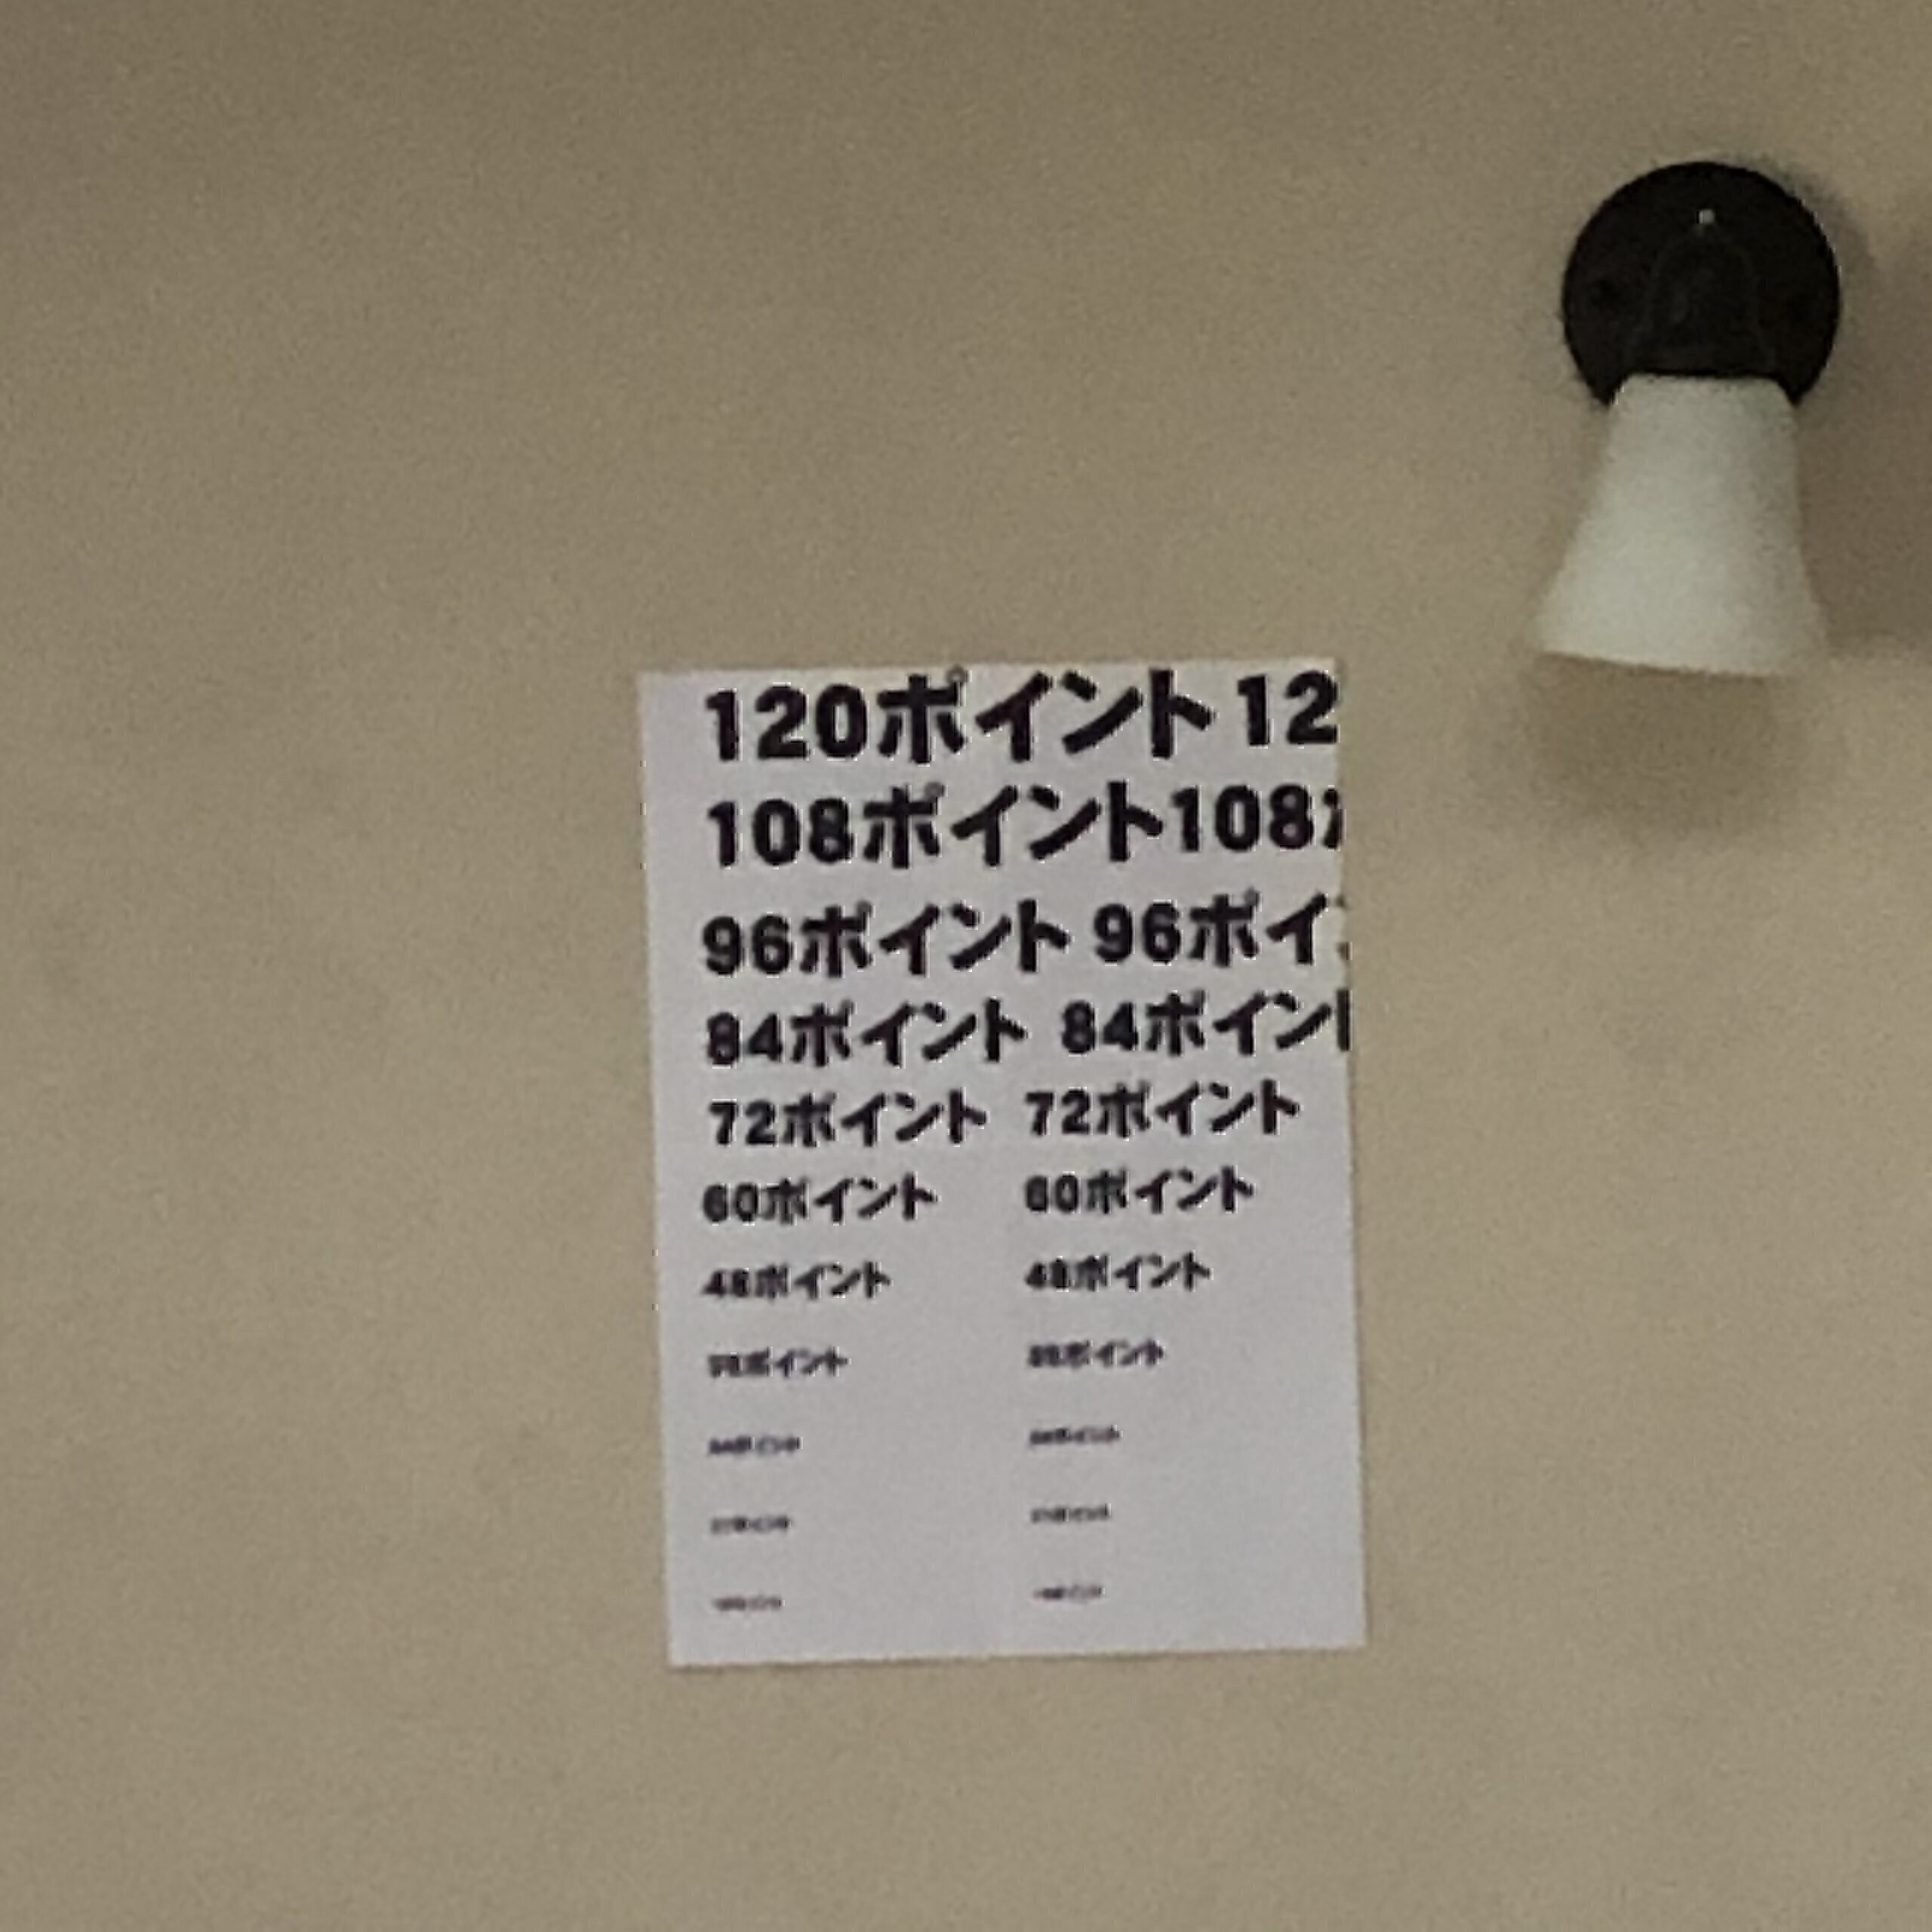 120ポイント 12
108ポイント108
96ポイント 96ポイ
84ポイント 84ポイント
72ポイント 72ポイント
60ポイント 60ポイント
48ポイント 48ポイント
ポイント ポイント